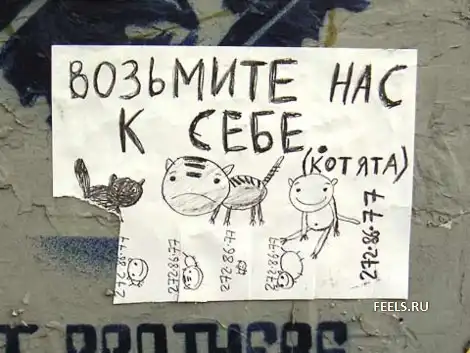 ВОЗЬМИТЕ НАС
К СЕБЕ.
(КОТЯТА)
272-86-77
272-86-77
272-86-77
272-86-77
272-86-77
FEELS.RU
BROTHERS